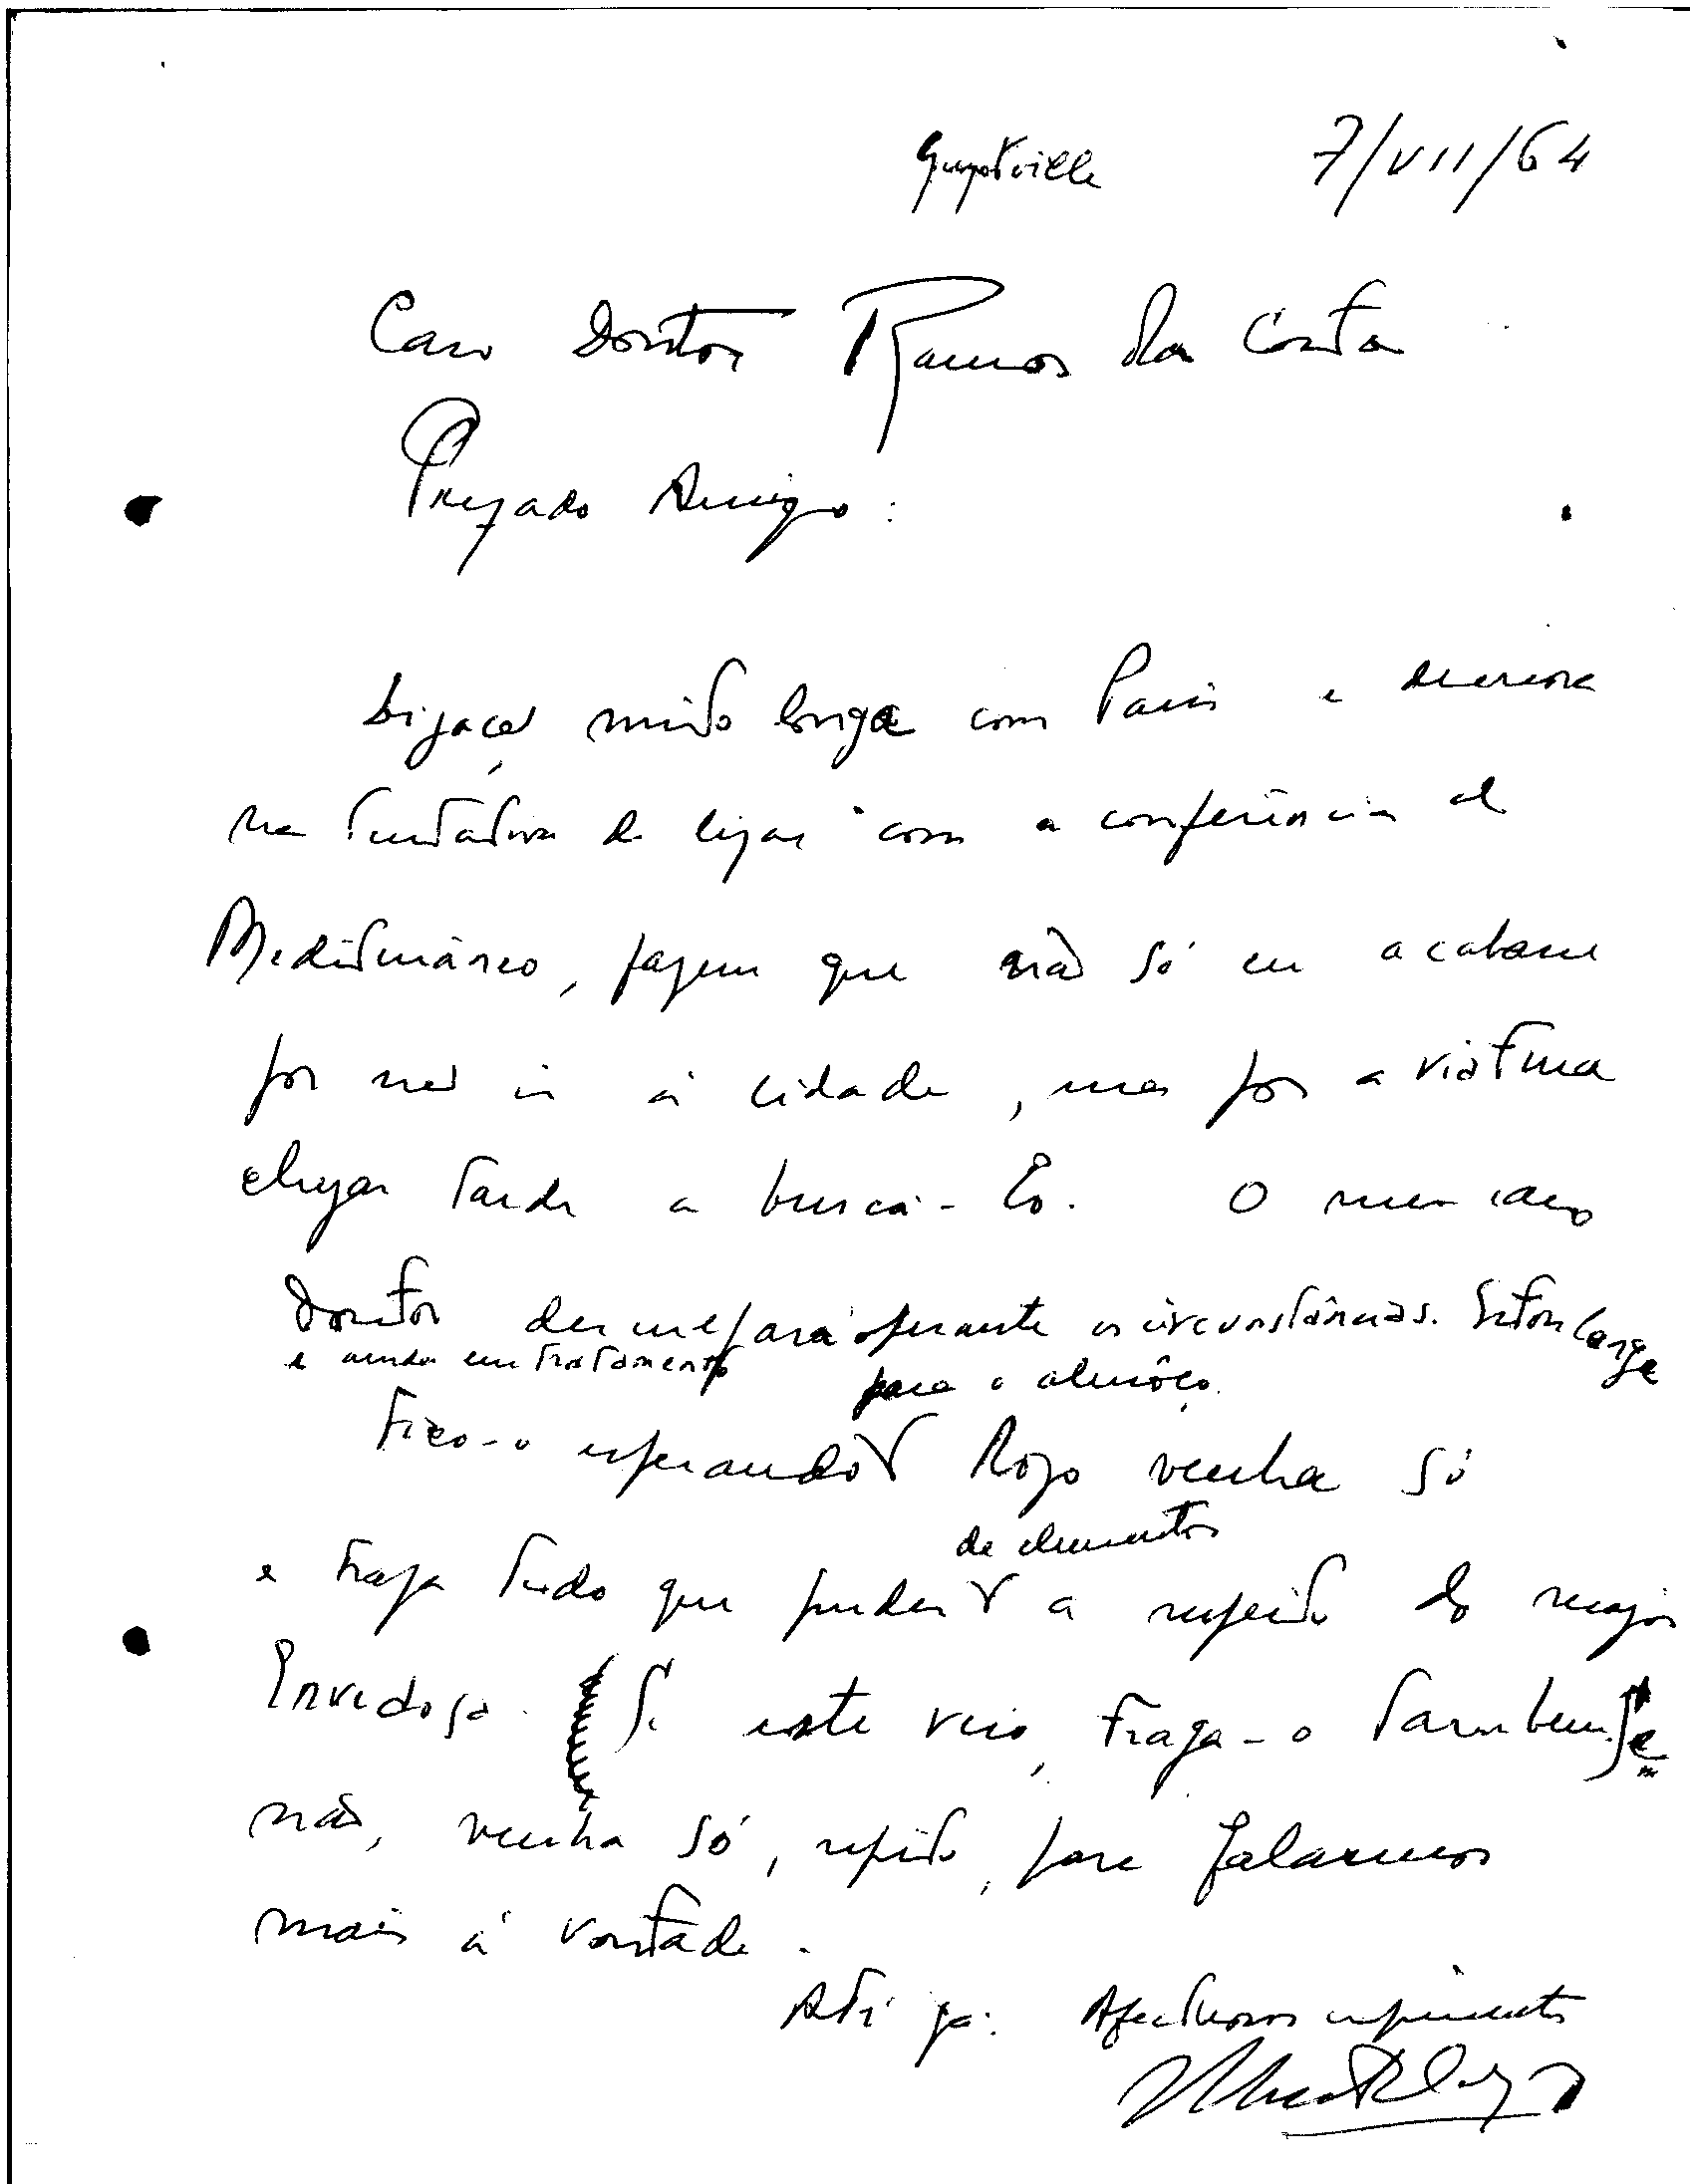 Guyotville 7/VII/64
Caro Doutor Ramos da Costa
Prezado Amigo:
Ligação muito longa com Paris e demora
na tentativa de ligar com a conferência do
Mediterrâneo, fazem que não só eu acabasse
por não ir à cidade, mas por a viatura
chegar tarde a buscá-lo. O meu caro
Doutor desculpará perante as circunstâncias. Estou
e ainda em tratamento para o almôço.
Fico-o esperando Rogo venha só
de elementos
e traga tudo que puder a respeito do major
Se este veio, traga-o tambem. Se
não, venha só, repito, para falarmos
mais à vontade.
Até já. Afectuosos cumprimentos